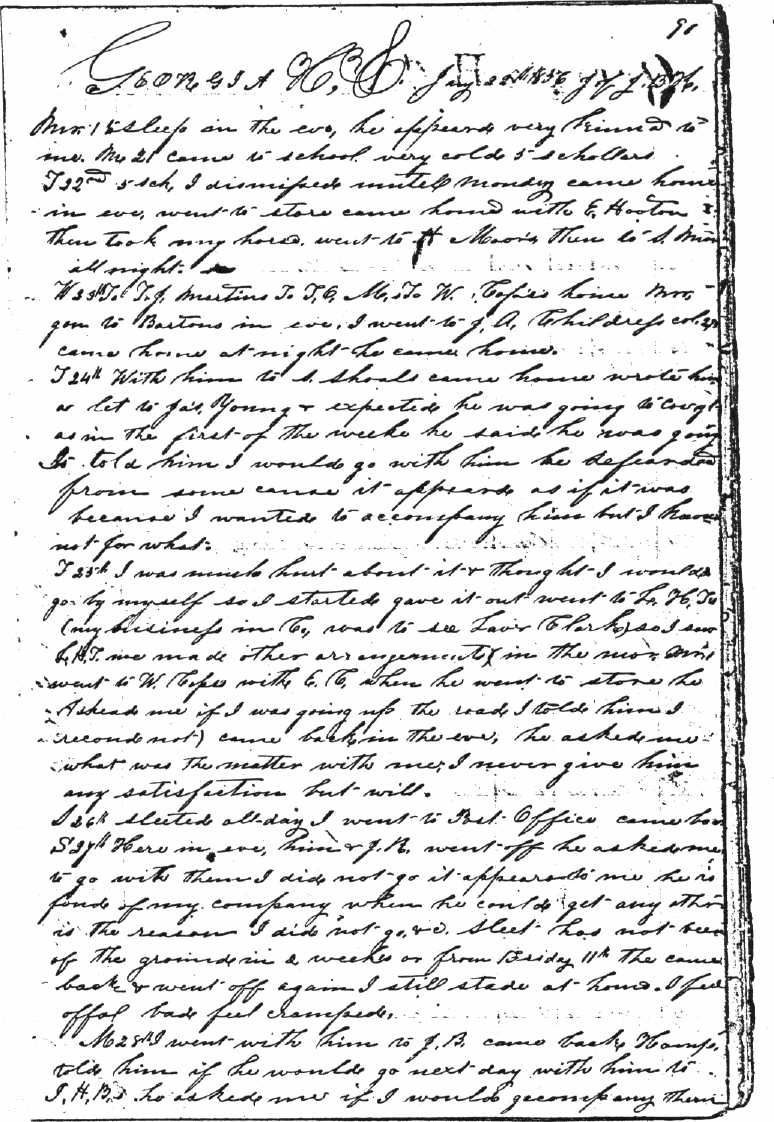 90
GEORGIA H, B, Jany 22th 1856 J of J. B. H,
sleep in the eve, he appeared very kinnd to
me. M 21 came to school very cold 5 schollars
T 22nd 5 sch, I dismissed untell Monday came home
in eve, went to store came home with E, Hooton &
then took my horse went to H Moors, then to S.
all night.
W 23th To T. J. Martins To T, C, M, To W. Copes home
gon to Bartons in eve, I went to J, A, Childress col.
came home at night he came home.
T 24th With him to S. Shoals came home wrote him
a let to Jas, Young & expected he was going to
as in the first of the weeke he said he was going
Is told him I would go with him he
from some cause it appeard as if it was
because I wanted to accompany him but I know
not for what.
F 25th I was much hurt about it & thought I would
go by myself so I started gave it out went to L, H, Ts
(my business in C, was to see Clark) so I saw
L, H, T. we made other arrangements in the mor,
went to W. Copes with E. C, when he went to store he
Askead me if I was going up the road I told him I
recond not) came back, in the eve, he asked me
what was the matter with me, I never give him
any satisfaction but will.
S 26th sleeted all day I went to Post Office came home
S 27th Here in eve, him & J. R. went off he asked me
to go with them I did not go it appears to me he is
fond of my company when he could get any other
is the reason I did not go, &c. Sleet has not been
of the ground in 2 weekes or from Friday 11th the came
back & went off again I still stade at home. I feel
offal bad feel cramped,
M 28th I went with him to J, B. came back,
told him if he would go next day with him to
J, H, B,s he asked me if I would accompany them